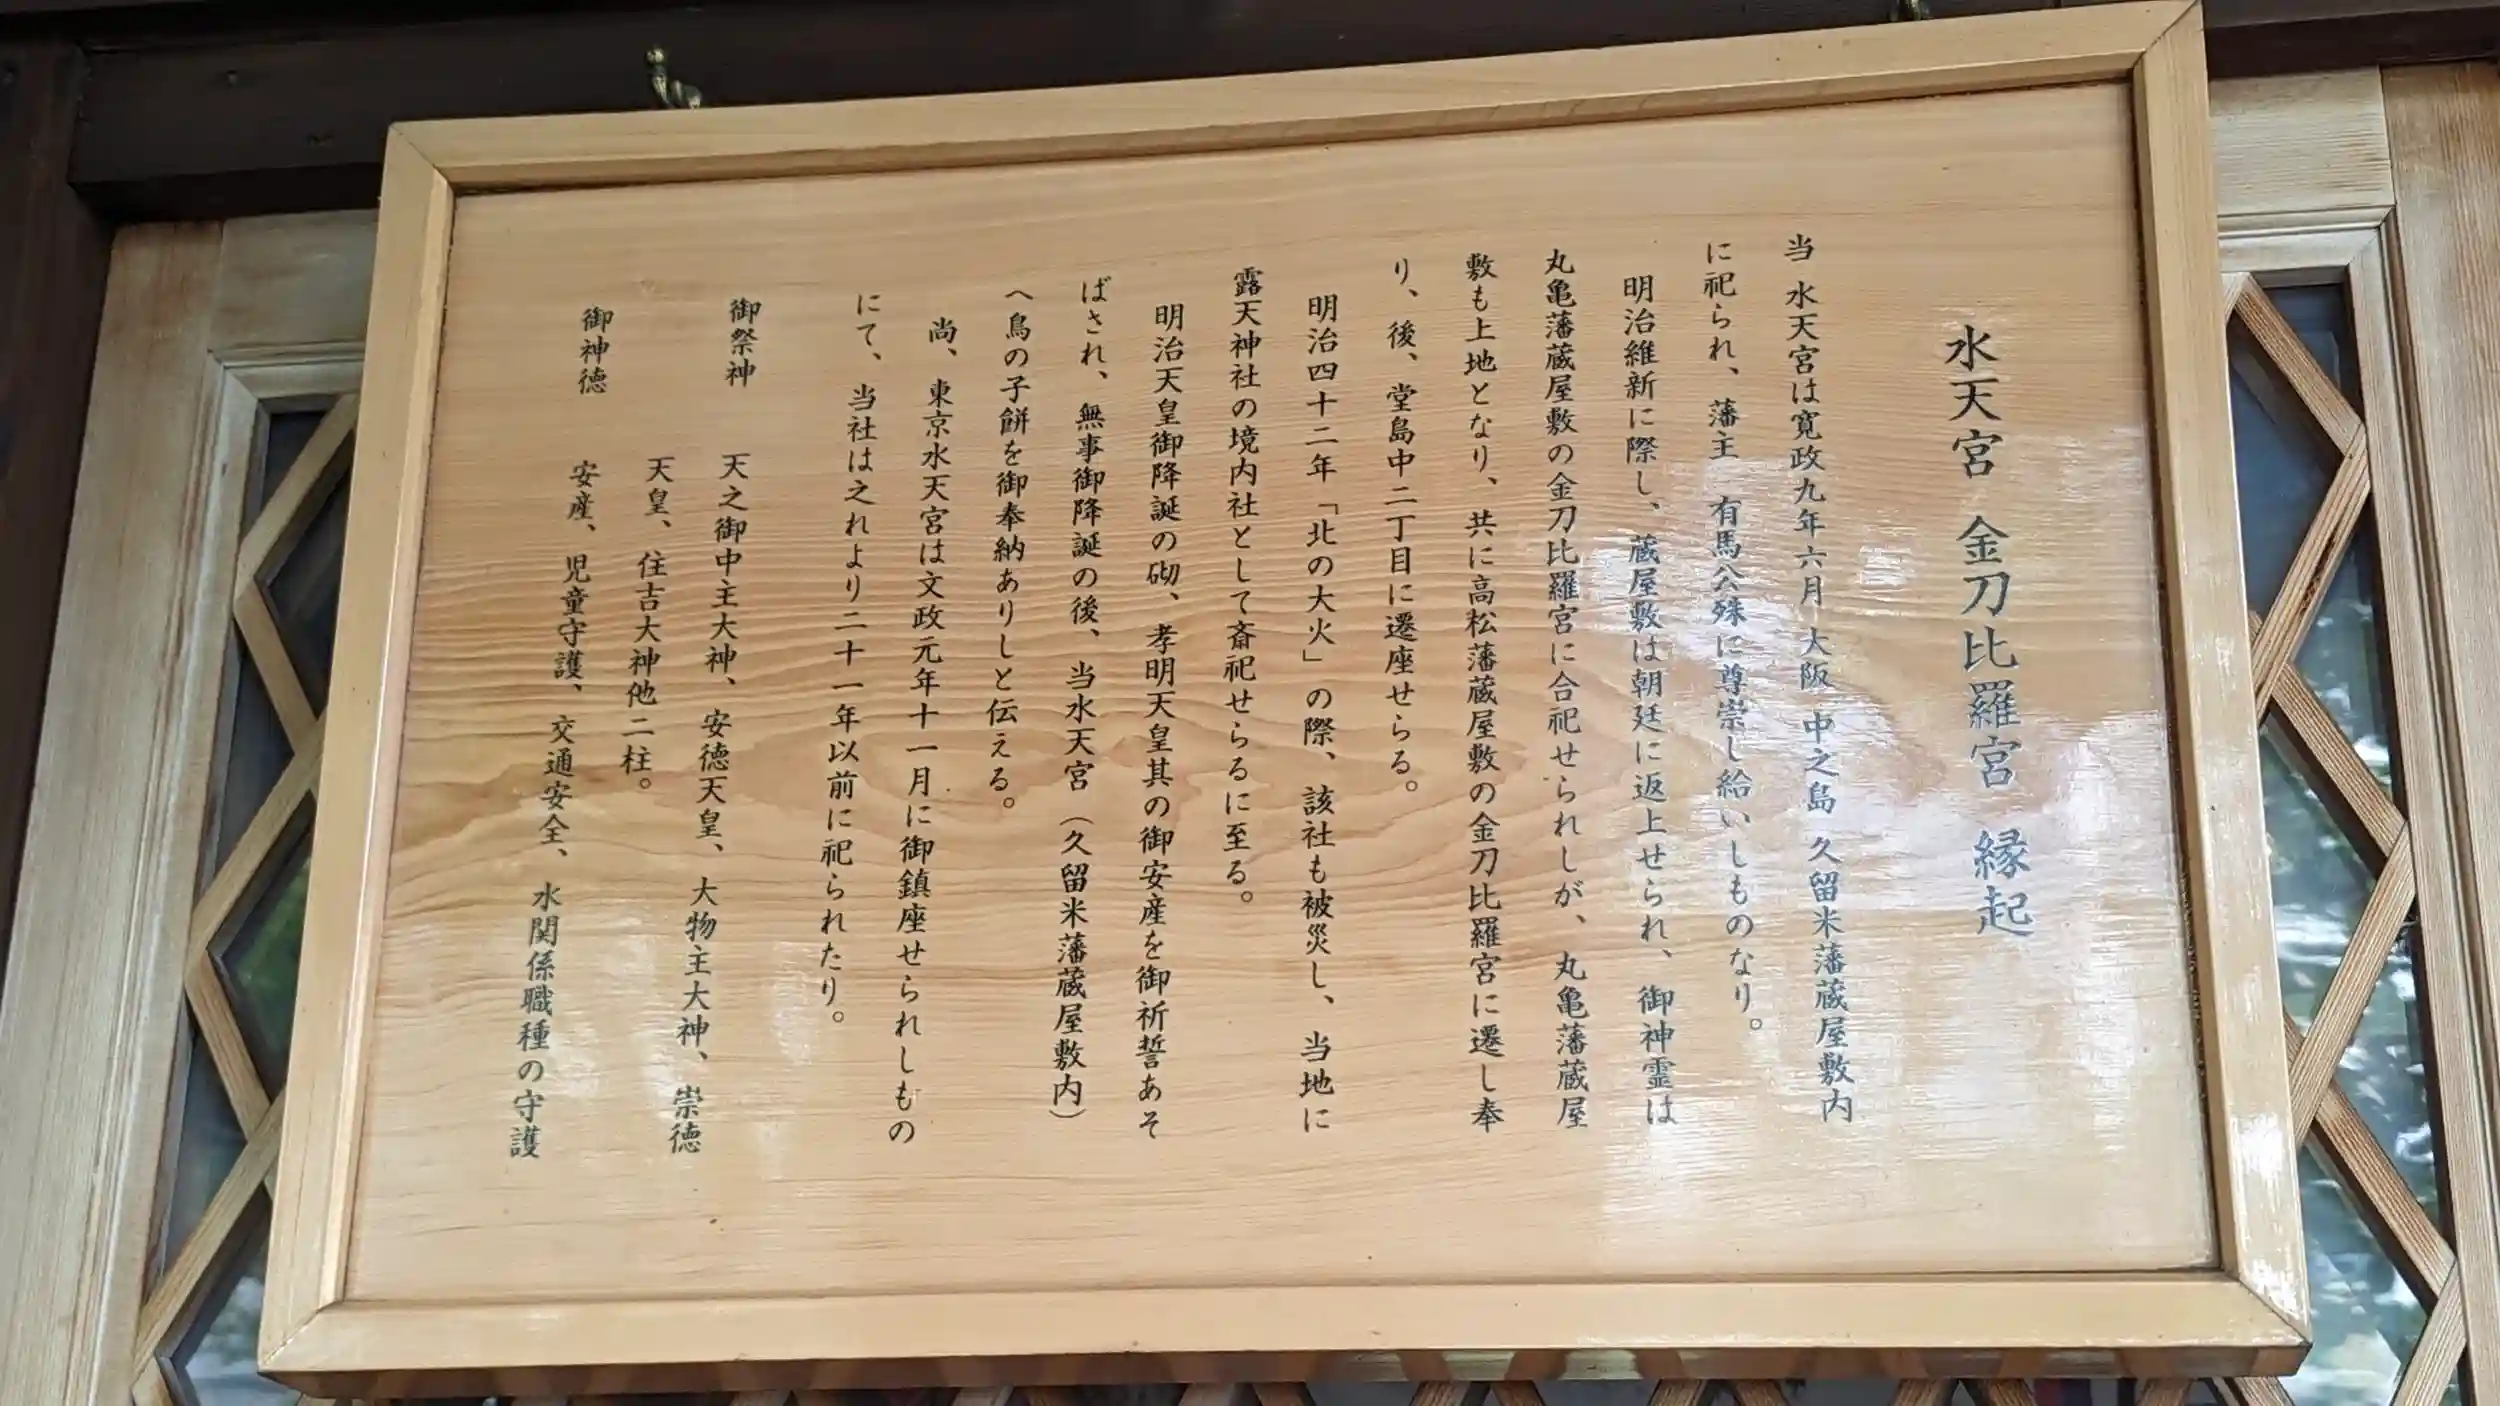 水天宮 金刀比羅宮 縁起
当 水天宮は寛政九年六月 大阪 中之島 久留米藩蔵屋敷内
に祀られ、藩主 有馬公殊に尊崇し給いしものなり。
明治維新に際し、蔵屋敷は朝廷に返上せられ、御神霊は
丸亀藩蔵屋敷の金刀比羅宮に合祀せられしが、丸亀藩蔵屋
敷も上地となり、共に高松藩蔵屋敷の金刀比羅宮に遷し奉
り、後、堂島中二丁目に遷座せらる。
明治四十二年「北の大火」の際、該社も被災し、当地に
露天神社の境内社として斎祀せらるに至る。
明治天皇御降誕の砌、孝明天皇其の御安産を御祈誓あそ
ばされ、無事御降誕の後、当水天宮（久留米藩蔵屋敷内）
へ鳥の子餅を御奉納ありしと伝える。
尚、東京水天宮は文政元年十一月に御鎮座せられしもの
にて、当社は之れより二十一年以前に祀られたり。
御祭神 天之御中主大神、安徳天皇、大物主大神、崇徳
天皇、住吉大神他二柱。
御神徳 安産、児童守護、交通安全、水関係職種の守護